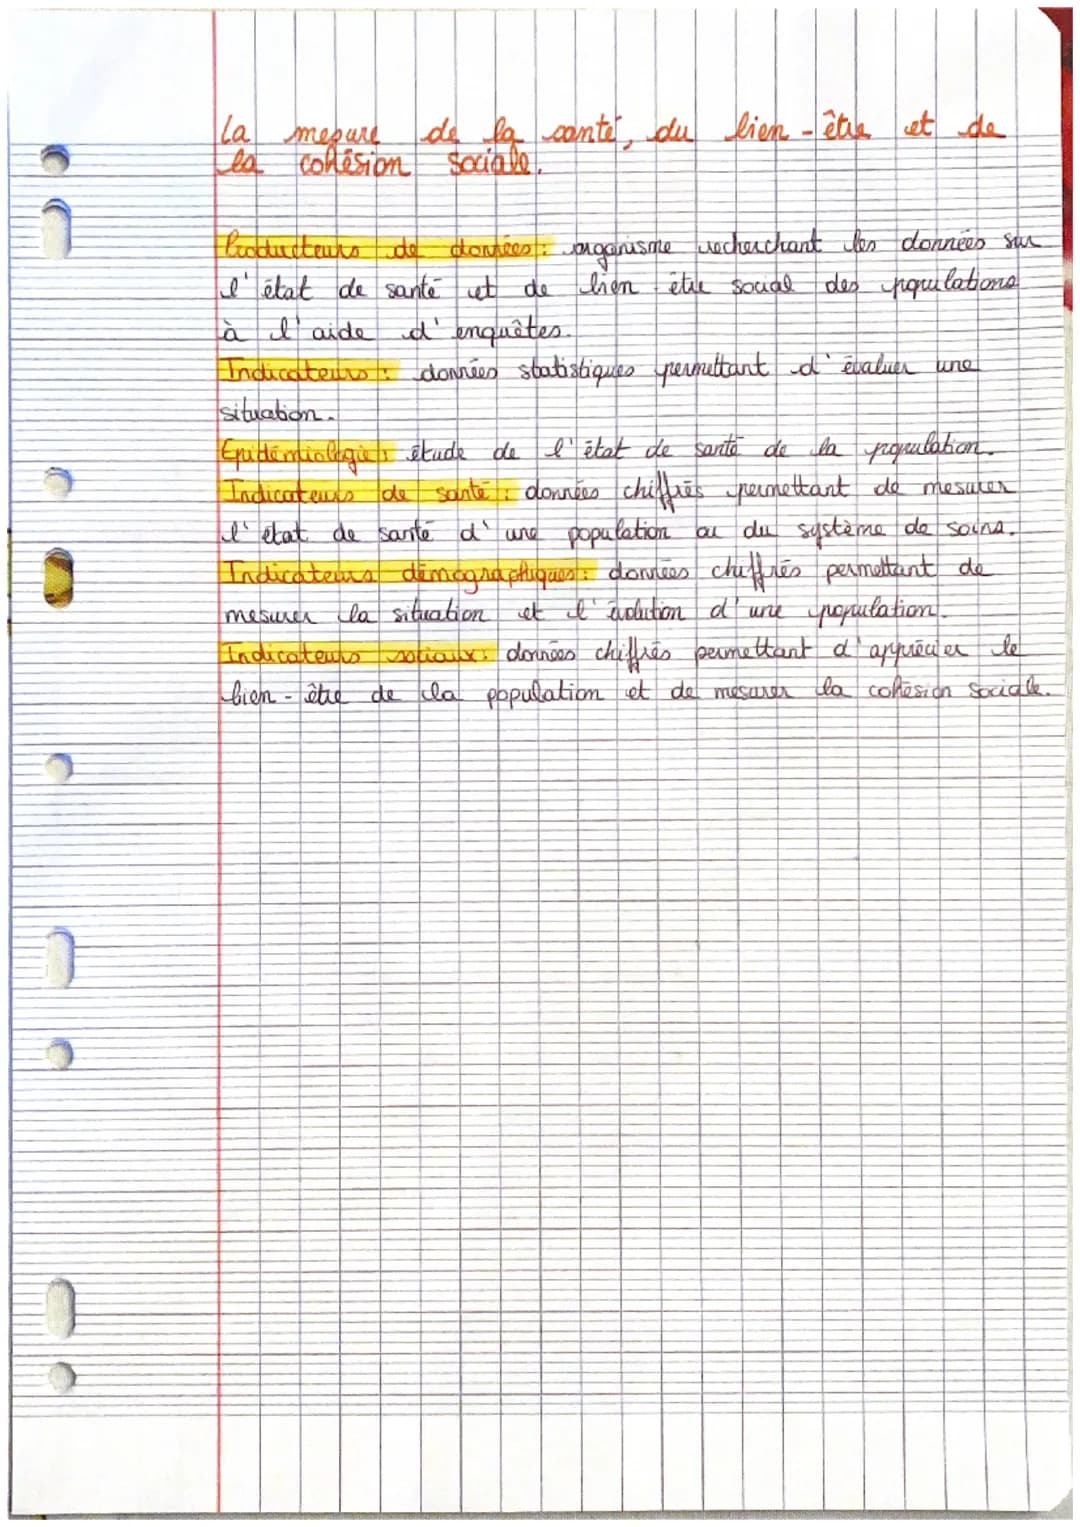 La mesure de la santé, du bien-être et de
la cohésion sociale.
Producteurs de données : organisme recherchant les données sur
l'état de santé et de bien-être social des populations
à l'aide d'enquêtes.
Indicateurs : données statistiques permettant d'évaluer une
situation.
Epidémiologie : étude de l'état de santé de la population.
Indicateurs de santé : données chiffrés permettant de mesurer
l'état de santé d'une population ou du système de soins.
Indicateurs démographiques : données chiffrés permettant de
mesurer la situation et l'évolution d'une population.
Indicateurs sociaux : données chiffrés permettant d'apprécier le
bien-être de la population et de mesurer la cohésion sociale.